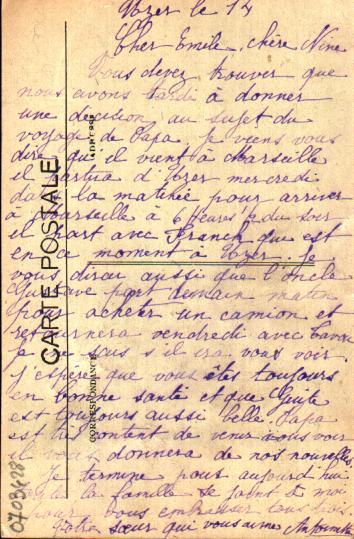 Uzer le 14
Cher Emile, chère Nine
Vous devez trouver que
nous avons tardi à donner
une décision au sujet du
voyage de Papa je viens vous
dire qu'il vient à Marseille
il partira d'Uzer mercredi
dans la matinée pour arriver
à Marseille à 6 Heures du soir
il part avec Franck que est
en ce moment à Uzer. Je
vous dirai aussi que l'oncle
Gustave part demain matin
pour acheter un camion et
retournera vendredi avec
je ne sais s'il ira vous voir
j'espère que vous êtes toujours
en bonne santé et que Guite
est toujours aussi belle. Papa
est content de venir vous voir
il vous donnera de nos nouvelles
Je termine pour aujourd'hui
la famille se joint à moi
pour vous embrasser
Votre sœur qui vous aime Antoinette
CARTE POSTALE
CORRESPONDANCE
ADRESSE